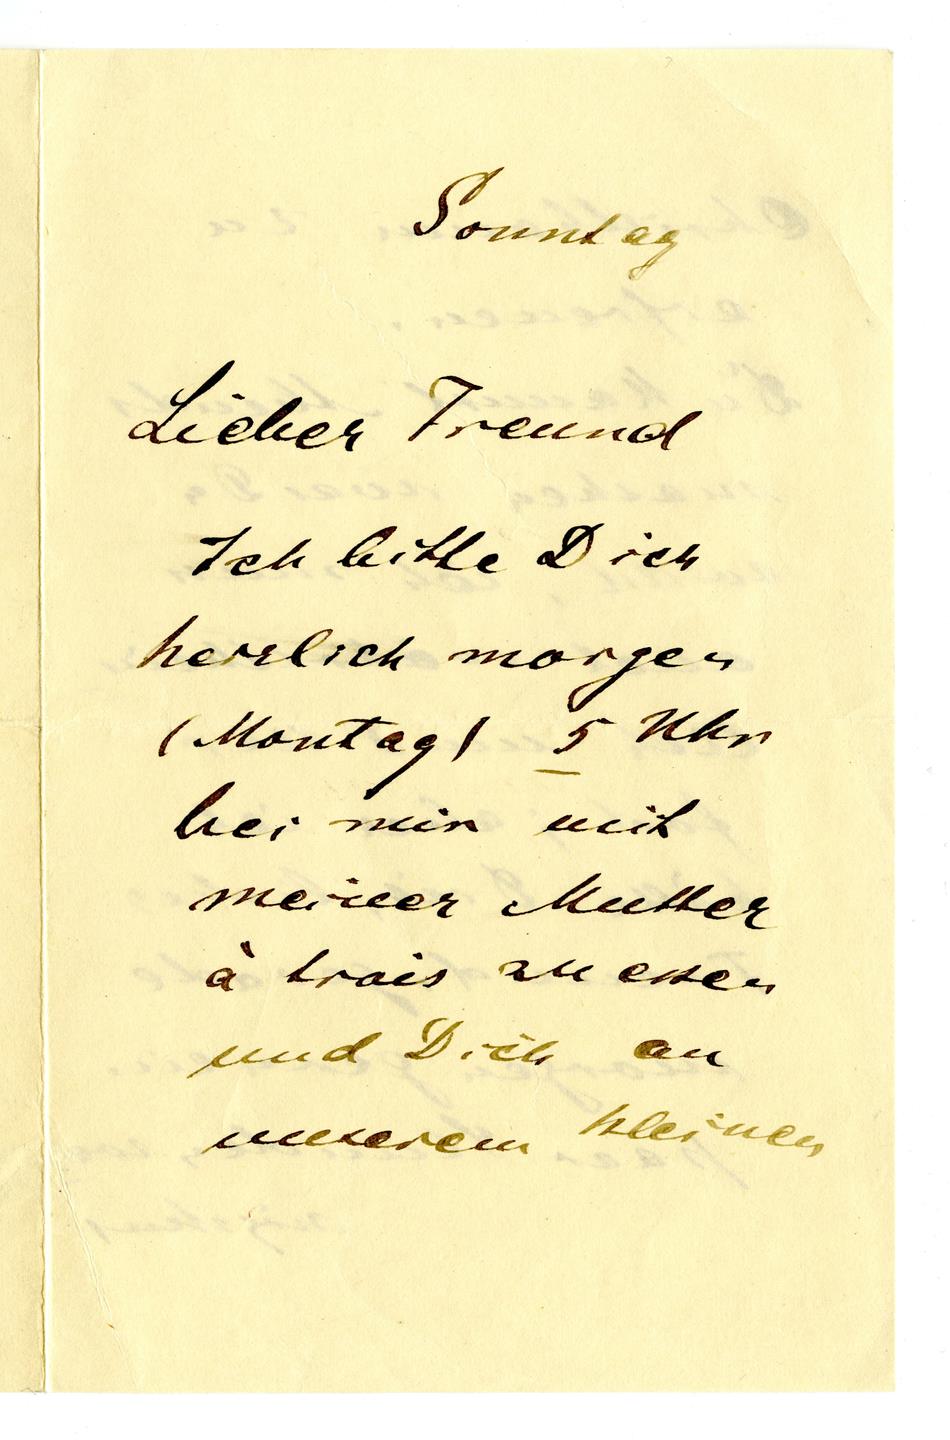 Sonntag
Lieber Freund
Ich bitte Dich
herzlich morgen
(Montag) 5 Uhr
bei mir mit
meiner Mutter
à trois zu essen
und Dich an
unserem kleinen